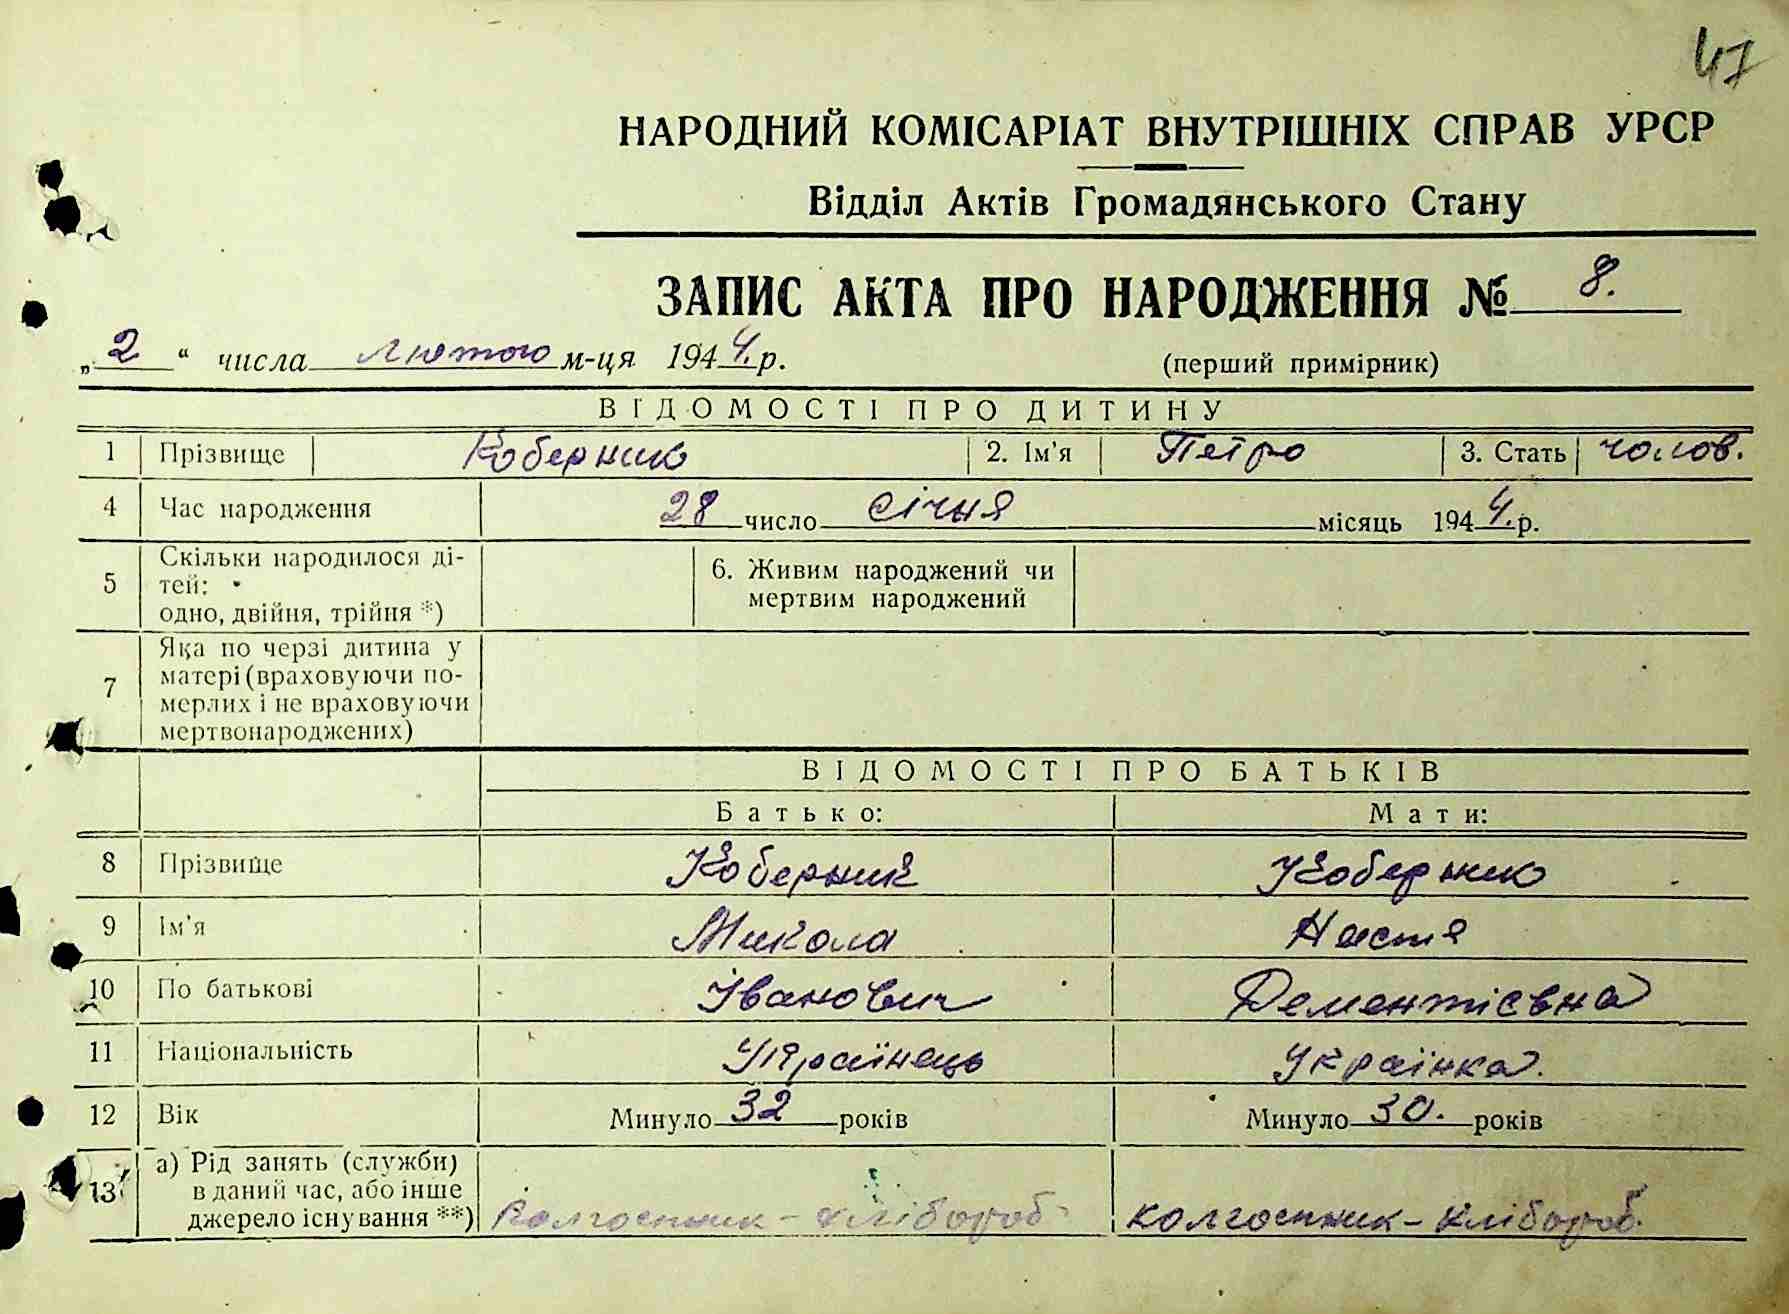 47
НАРОДНИЙ КОМІСАРІАТ ВНУТРІШНІХ СПРАВ УРСР
Відділ Актів Громадянського Стану
ЗАПИС АКТА ПРО НАРОДЖЕННЯ № 8.
„2“ числа Лютого м-ця 1944. р.
(перший примірник)
ВІДОМОСТІ ПРО ДИТИНУ
1 Прізвище Коберник 2. Ім'я Петро 3. Стать чолов.
4 Час народження 28 число січня місяць 1944. р.
5 Скільки народилося ді-
тей:
одно, двійня, трійня *)
6. Живим народжений чи
мертвим народжений
7 Яка по черзі дитина у
матері (враховуючи по-
мерлих і не враховуючи
мертвонароджених)
ВІДОМОСТІ ПРО БАТЬКІВ
Батько: Мати:
8 Прізвище Коберник Коберник
9 Ім'я Микола Настя
10 По батькові Іванович Дементієвна
11 Національність Українець Українка.
12 Вік Минуло 32 років Минуло 30. років
13 а) Рід занять (служби)
в даний час, або інше
джерело існування **) Колгоспник - хлібороб колгоспник - хлібороб.